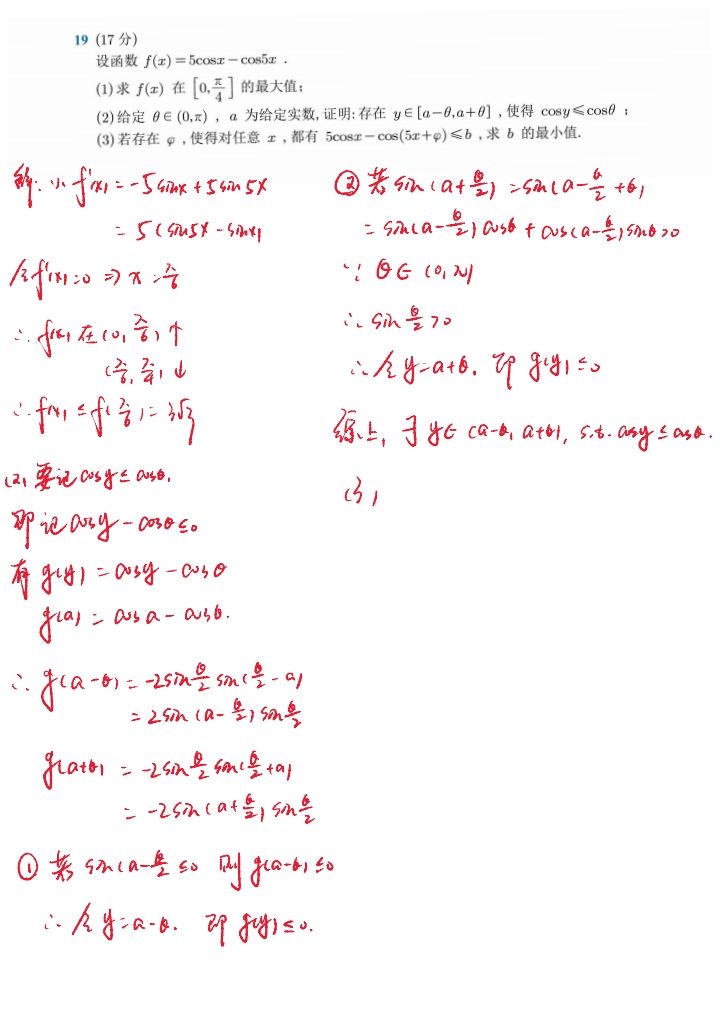 19 (17 分)
设函数 f(x)=5cosx−cos5x .
(1)求 f(x) 在 [0,π/4] 的最大值;
(2)给定 θ∈(0,π) , a 为给定实数, 证明: 存在 y∈[a−θ,a+θ] , 使得 cosy⩽cosθ ;
(3)若存在 φ , 使得对任意 x , 都有 5cosx−cos(5x+φ)⩽b , 求 b 的最小值.
解: (1) f'(x) = -5sinx + 5sin5x
= 5(sin5x - sinx)
令f'(x)=0 ⇒ x = π/6
∴ f(x) 在 (0, π/6) ↑
(π/6, π/4) ↓
∴ f(x) ≤ f(π/6) = 3√3
(2) 要证 cosy ≤ cosθ,
即证 cosy - cosθ ≤ 0
有 g(y) = cosy - cosθ
g(a) = cosa - cosθ.
∴ g(a-θ) = -2sin θ/2 sin(θ/2 - a)
= 2sin(a - θ/2) sin θ/2
g(a+θ) = -2sin θ/2 sin(θ/2 + a)
= -2sin(a + θ/2) sin θ/2
① 若 sin(a - θ/2 ≤ 0 则 g(a-θ) ≤ 0
∴ 令 y = a-θ. 即 g(y) ≤ 0.
② 若 sin(a + θ/2) = sin(a - θ/2 + θ)
= sin(a - θ/2) cosθ + cos(a - θ/2) sinθ > 0
∵ θ ∈ (0, π)
∴ sin θ/2 > 0
∴ 令 y = a+θ. 即 g(y) ≤ 0
综上, ∃ y∈ (a-θ, a+θ), s.t. cosy ≤ cosθ.
(3)